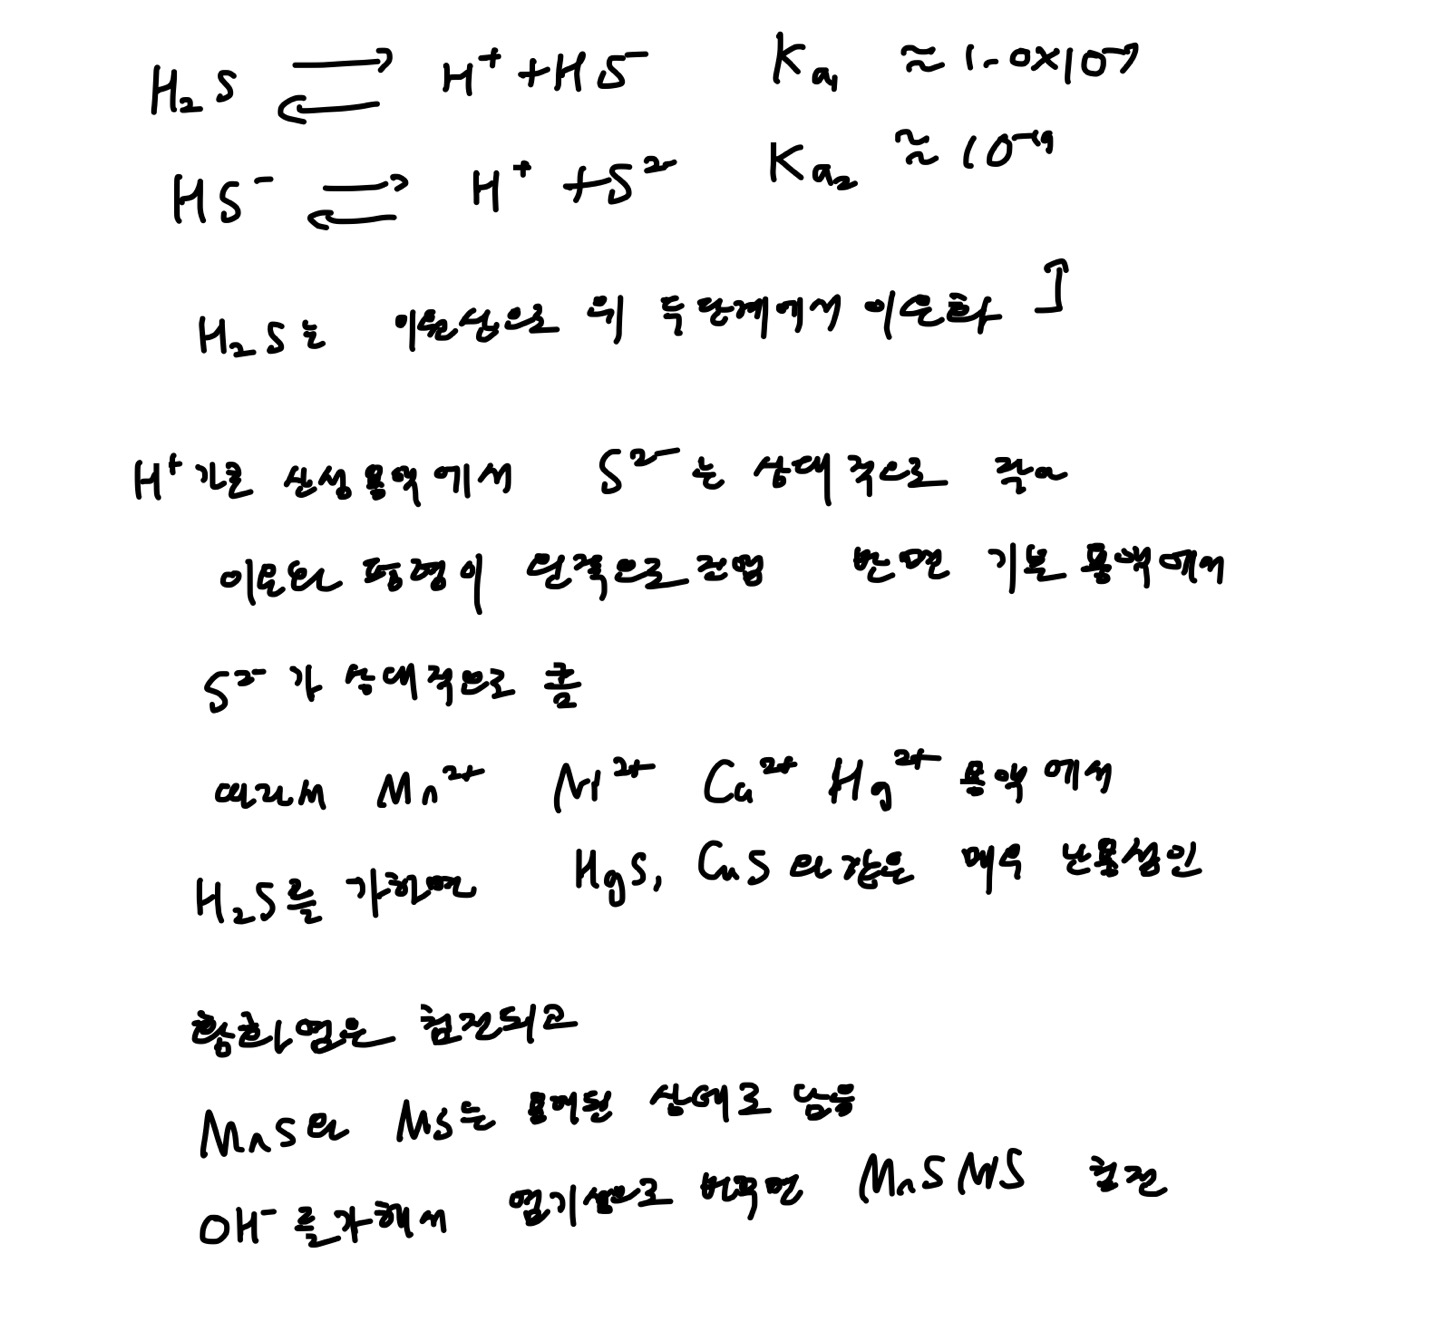 H₂S ⇄ H⁺ + HS⁻ Ka₁ ≈ 1.0×10⁻⁷
HS⁻ ⇄ H⁺ + S²⁻ Ka₂ ≈ 10⁻¹⁹
H₂S는 이원산으로 위 두단계에서 이온화
H⁺ 산성용액에서 S²⁻는 상대적으로 작아
이온화 평형이 왼쪽으로 전범 반면 기본 용액에서
S²⁻가 상대적으로 큼
따라서 Mn²⁺ Ni²⁺ Cu²⁺ Hg²⁺ 용액에서
H₂S를 가하면 HgS, CuS와 같은 매우 난용성인
황화염은 침전되고
MnS와 NiS는 용해된 상태로 남음
OH⁻를가해서 염기성으로 바꾸면 MnS NiS 침전